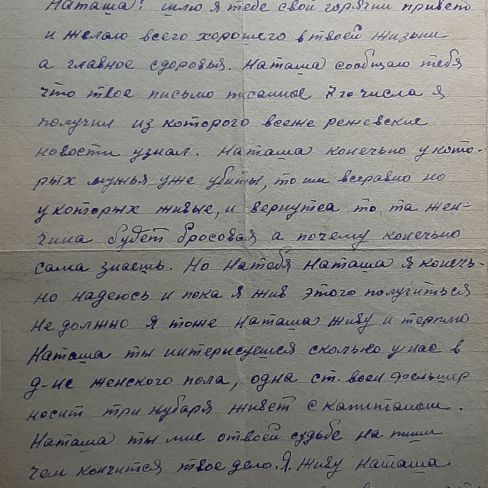 Наташа! шлю я тебе свой горячий привет
и желаю всего хорошего в твоей жизни
а главное здоровья. Наташа сообщаю тебя
что твое письмо писанное 7го числа я
получил из которого все же режевские
новости узнал. Наташа конечно у кото-
рых мужья уже убиты, то им всеравно но
у которых живые, и вернутся то та жен-
чина будет бросовая а почему конечно
сама знаешь. Но на тебя Наташа я конеч-
но надеюсь и пока я жив этого получиться
не должно я тоже Наташа живу и терплю
Наташа ты интересуешся сколько у нас в
д-не женского пола, одна ст. воен фельшер
носит три кубаря живет с капитаном.
Наташа ты мне о твоей судьбе на пиши
чем кончится твое дело. Я живу Наташа